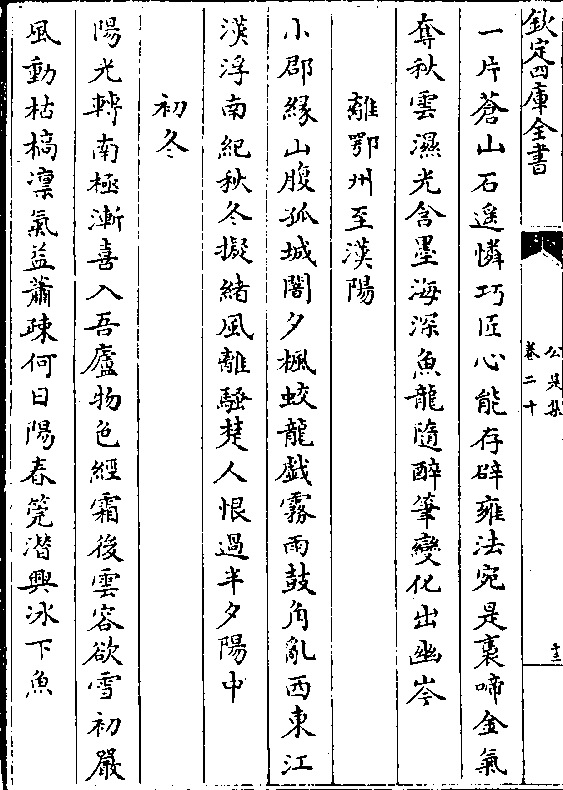 欽定四庫全書
公是集
卷二十
一片蒼山石遥憐巧匠心能存辟雍法宛是褭啼金氣
奪秋雲濕光含墨海深魚龍隨醉筆變化出幽岑
離鄂州至漢陽
小郡縁山腹孤城闇夕楓蛟龍戯霧雨鼓角亂西東江
漢浮南紀秋冬擬緒風離騷楚人恨過半夕陽中
初冬
陽光轉南極漸喜入吾廬物色經霜後雲容欲雪初嚴
風動枯槁凛氣益蕭踈何日陽春筦潛興冰下魚